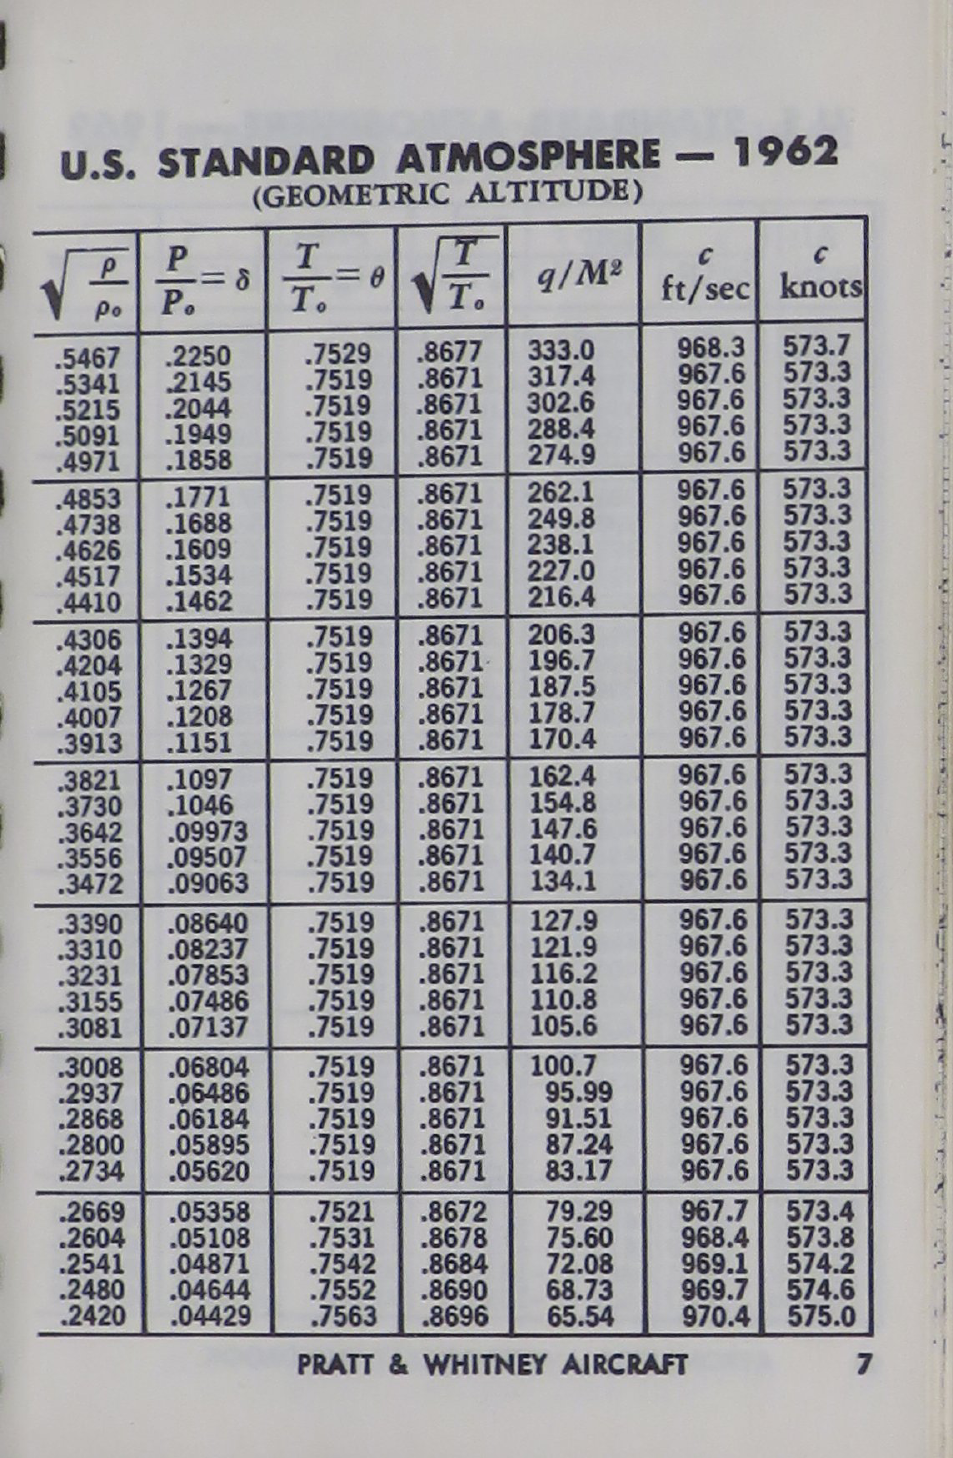 U.S. STANDARD ATMOSPHERE — 1962
(GEOMETRIC ALTITUDE)
√ρ/ρₒ P/Pₒ = δ T/Tₒ = θ √T/Tₒ q/M² c ft/sec c knots
.5467 .2250 .7529 .8677 333.0 968.3 573.7
.5341 .2145 .7519 .8671 317.4 967.6 573.3
.5215 .2044 .7519 .8671 302.6 967.6 573.3
.5091 .1949 .7519 .8671 288.4 967.6 573.3
.4971 .1858 .7519 .8671 274.9 967.6 573.3
.4853 .1771 .7519 .8671 262.1 967.6 573.3
.4738 .1688 .7519 .8671 249.8 967.6 573.3
.4626 .1609 .7519 .8671 238.1 967.6 573.3
.4517 .1534 .7519 .8671 227.0 967.6 573.3
.4410 .1462 .7519 .8671 216.4 967.6 573.3
.4306 .1394 .7519 .8671 206.3 967.6 573.3
.4204 .1329 .7519 .8671 196.7 967.6 573.3
.4105 .1267 .7519 .8671 187.5 967.6 573.3
.4007 .1208 .7519 .8671 178.7 967.6 573.3
.3913 .1151 .7519 .8671 170.4 967.6 573.3
.3821 .1097 .7519 .8671 162.4 967.6 573.3
.3730 .1046 .7519 .8671 154.8 967.6 573.3
.3642 .09973 .7519 .8671 147.6 967.6 573.3
.3556 .09507 .7519 .8671 140.7 967.6 573.3
.3472 .09063 .7519 .8671 134.1 967.6 573.3
.3390 .08640 .7519 .8671 127.9 967.6 573.3
.3310 .08237 .7519 .8671 121.9 967.6 573.3
.3231 .07853 .7519 .8671 116.2 967.6 573.3
.3155 .07486 .7519 .8671 110.8 967.6 573.3
.3081 .07137 .7519 .8671 105.6 967.6 573.3
.3008 .06804 .7519 .8671 100.7 967.6 573.3
.2937 .06486 .7519 .8671 95.99 967.6 573.3
.2868 .06184 .7519 .8671 91.51 967.6 573.3
.2800 .05895 .7519 .8671 87.24 967.6 573.3
.2734 .05620 .7519 .8671 83.17 967.6 573.3
.2669 .05358 .7521 .8672 79.29 967.7 573.4
.2604 .05108 .7531 .8678 75.60 968.4 573.8
.2541 .04871 .7542 .8684 72.08 969.1 574.2
.2480 .04644 .7552 .8690 68.73 969.7 574.6
.2420 .04429 .7563 .8696 65.54 970.4 575.0
PRATT & WHITNEY AIRCRAFT 7